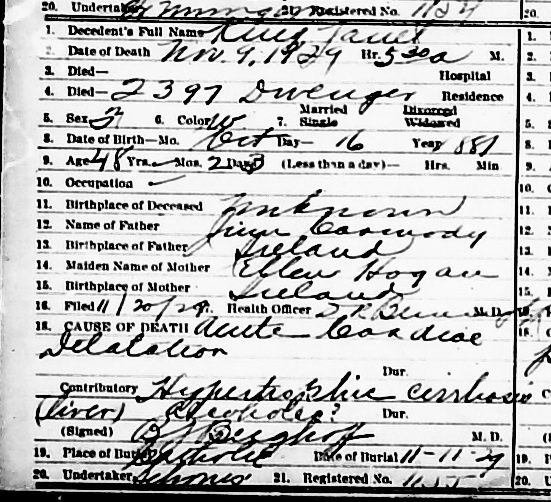 20. Undertaker 21. Registered No. 1154
1. Decedent's Full Name
2. Date of Death Nov. 9, 1929 Hr. 5 30 a M.
3. Died— Hospital
4. Died— 2397 Dwenger Residence
Married Divorced
5. Sex 6. Color W 7. Single Widowed
8. Date of Birth—Mo. Oct Day— 16 Year 1881
9. Age 48 Yrs. Mos. Days (Less than a day)— Hrs. Min
10. Occupation
11. Birthplace of Deceased Unknown
12. Name of Father Carmody
13. Birthplace of Father Ireland
14. Maiden Name of Mother Ellen Hogan
15. Birthplace of Mother Ireland
16. Filed 11/20/29. Health Officer M. D.
18. CAUSE OF DEATH Acute Cardiac
Dilatation
Dur.
Contributory Hypertrophic cirrhosis
(liver) Alcoholic? Dur.
(Signed) B J Berghoff M. D.
19. Place of Burial Catholic Date of Burial 11-11-29
20. Undertaker 21. Registered No. 1155